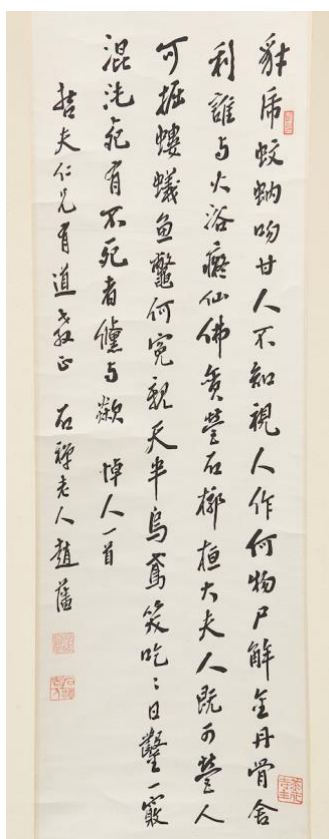 豺虎蚊蚋吻甘人不知視人作何物尸解金丹骨舍
利誰与火浴癡仙佛營石槨桓大夫人既可營人
可掘螻蟻魚鱉何冤親天半烏鳶笑吃〻日鑿一竅
混沌死有不死者儵与欻 悼人一首
夫仁兄有道教正 石禪老人趙藩